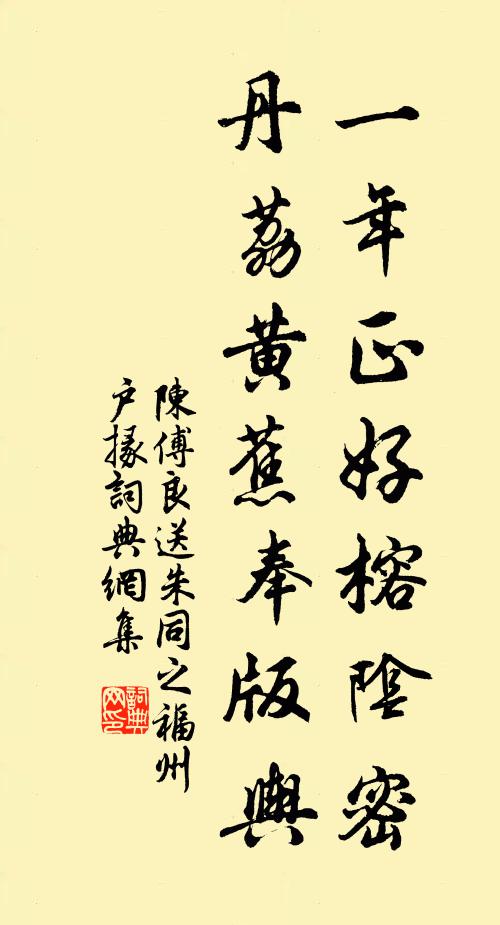 一年正好榕陰密
丹荔黃蕉奉版輿
陳傅良送朱同之福州
户掾詞典網集
詞典網印